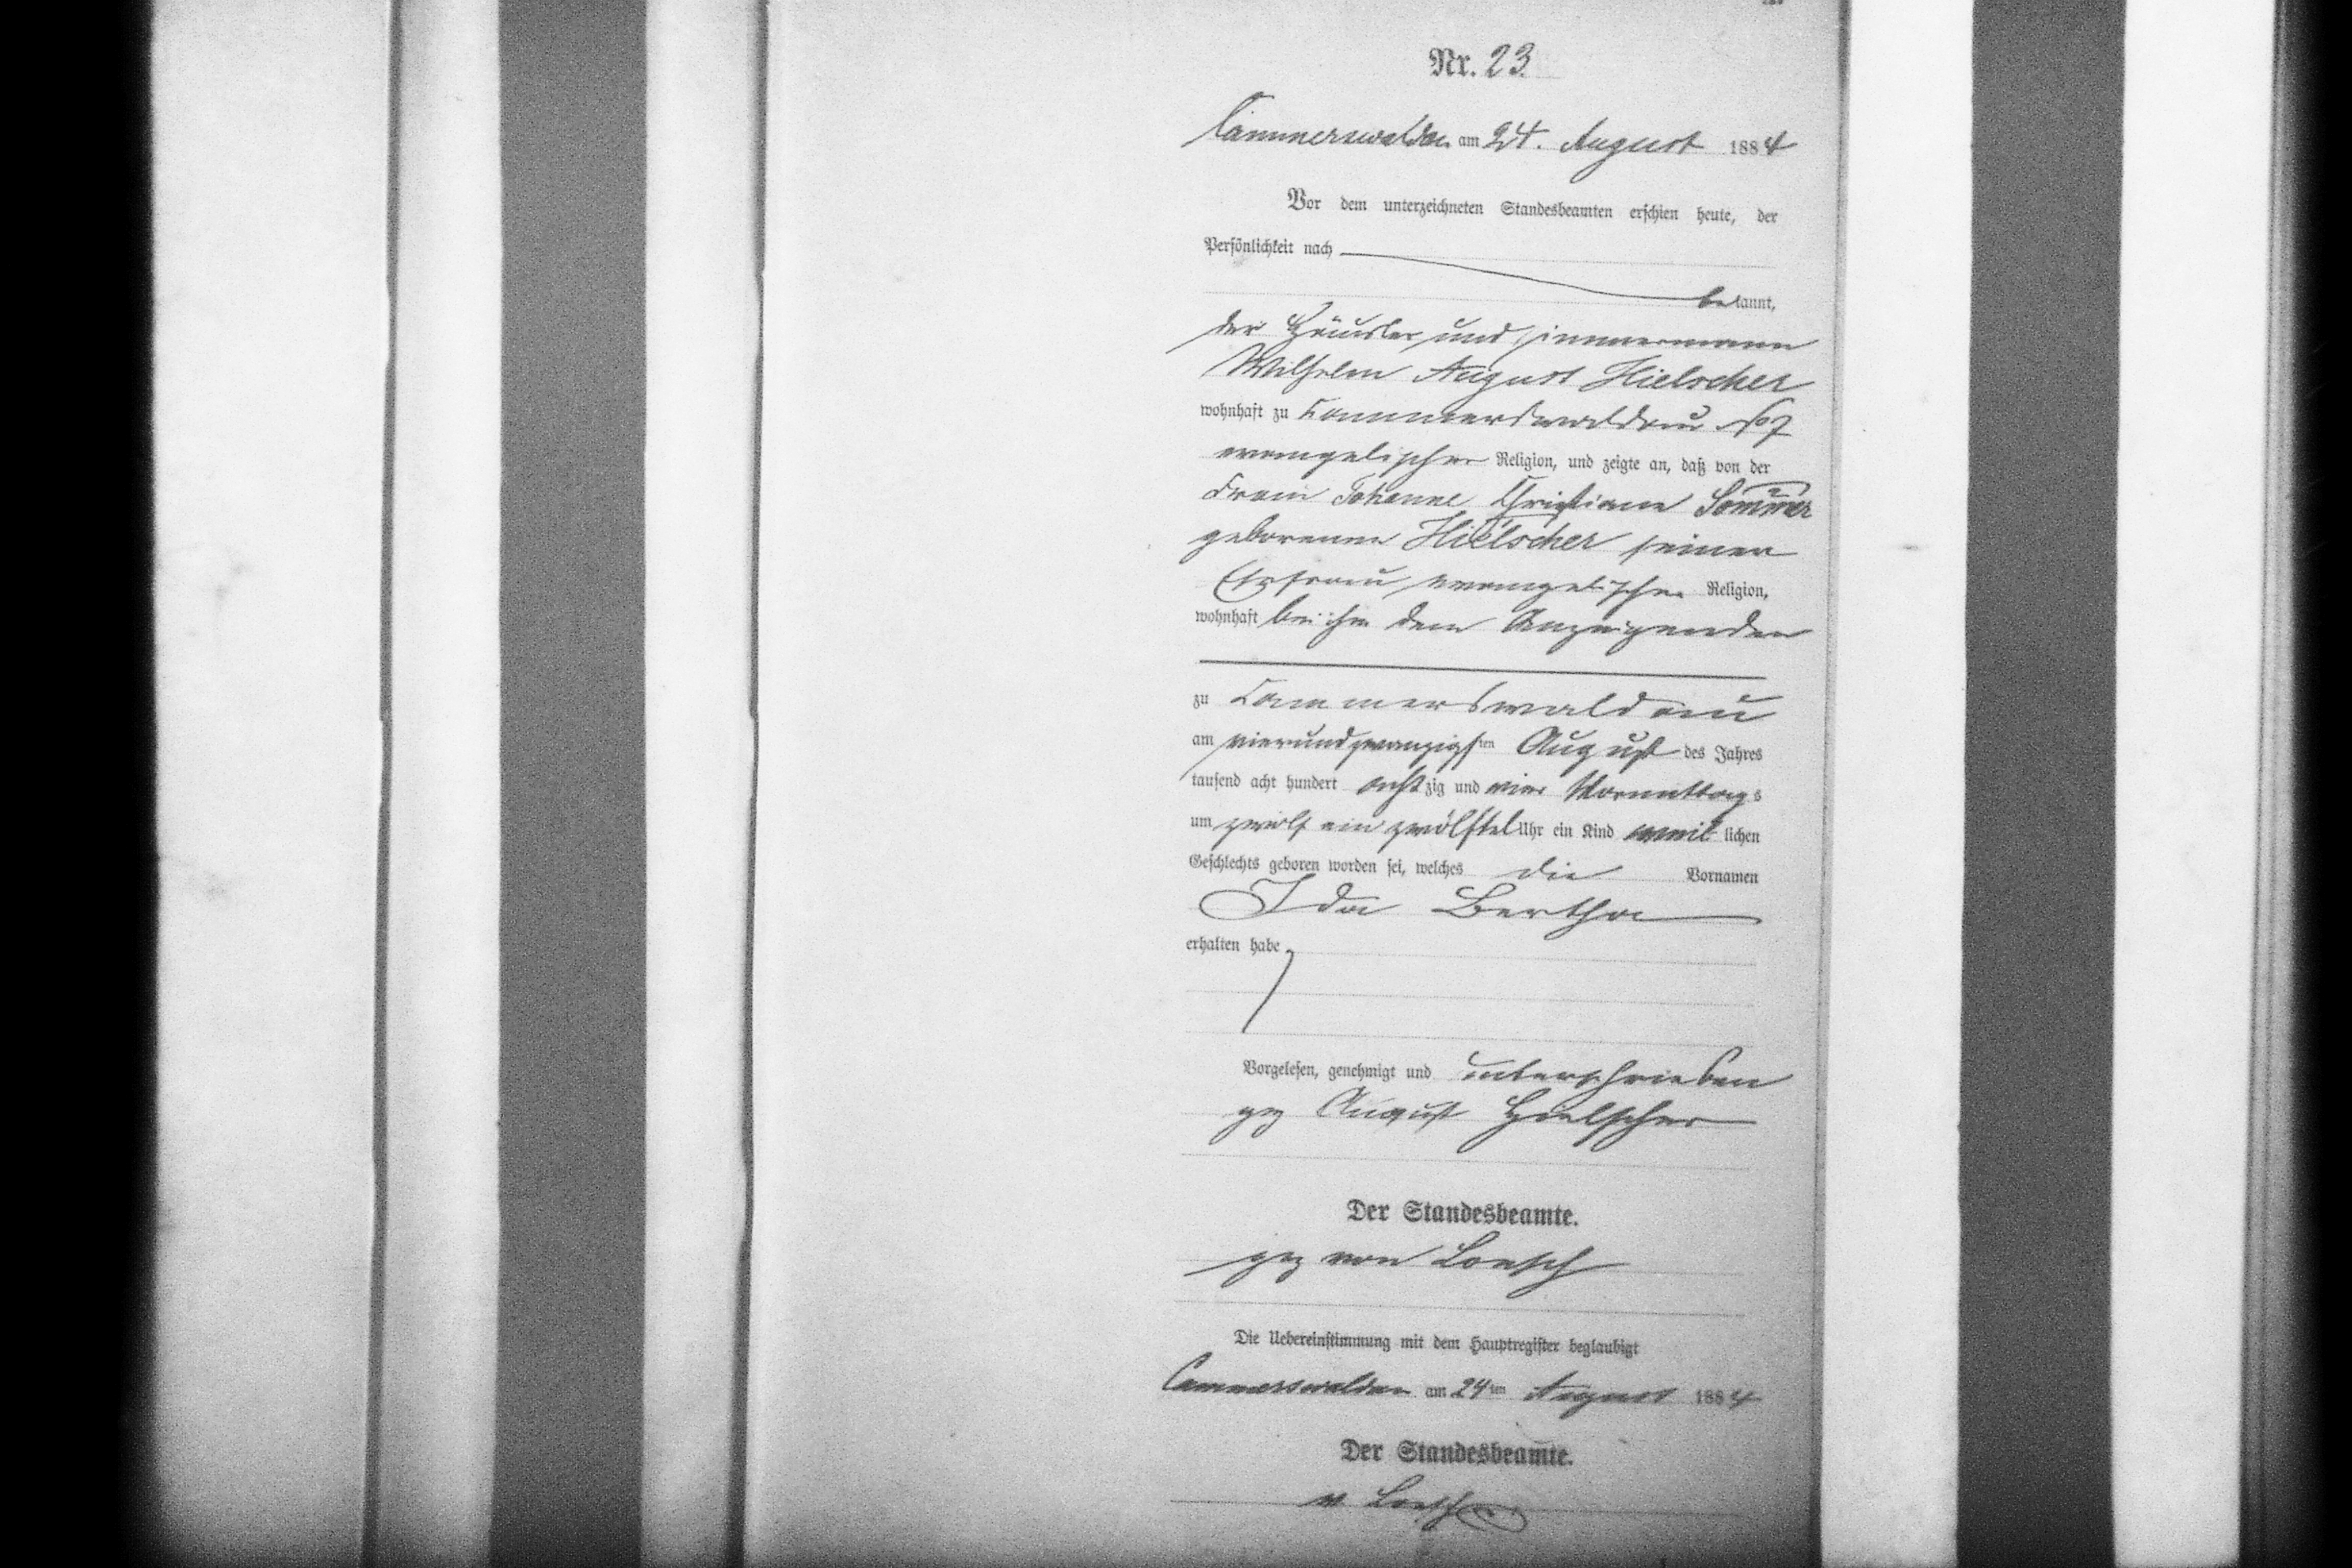 Nr. 23
Cammerswaldau am 24. August 1884
Vor dem unterzeichneten Standesbeamten erschien heute, der
Persönlichkeit nach
bekannt,
der Häusler und Zimmermann
Wilhelm August Hielscher
wohnhaft zu Cammerswaldau No 7
evangelischer Religion, und zeigte an, daß von der
Frau Johanne Christiane Sommer
geborenen Hielscher seiner
Ehefrau evangelischer Religion,
wohnhaft bei ihm dem Anzeigenden
zu Cammerswaldau
am vierundzwanzigsten August des Jahres
tausend acht hundert achtzig und vier Vormittags
um zwölf ein zwölftel Uhr ein Kind weiblichen
Geschlechts geboren worden sei, welches die Vornamen
Ida Bertha
erhalten habe
Vorgelesen, genehmigt und unterschrieben
gez August Hielscher
Der Standesbeamte.
gez von Loesch
Die Uebereinstimmung mit dem Hauptregister beglaubigt
Cammerswaldau am 24ten August 1884
Der Standesbeamte.
v. Loesch